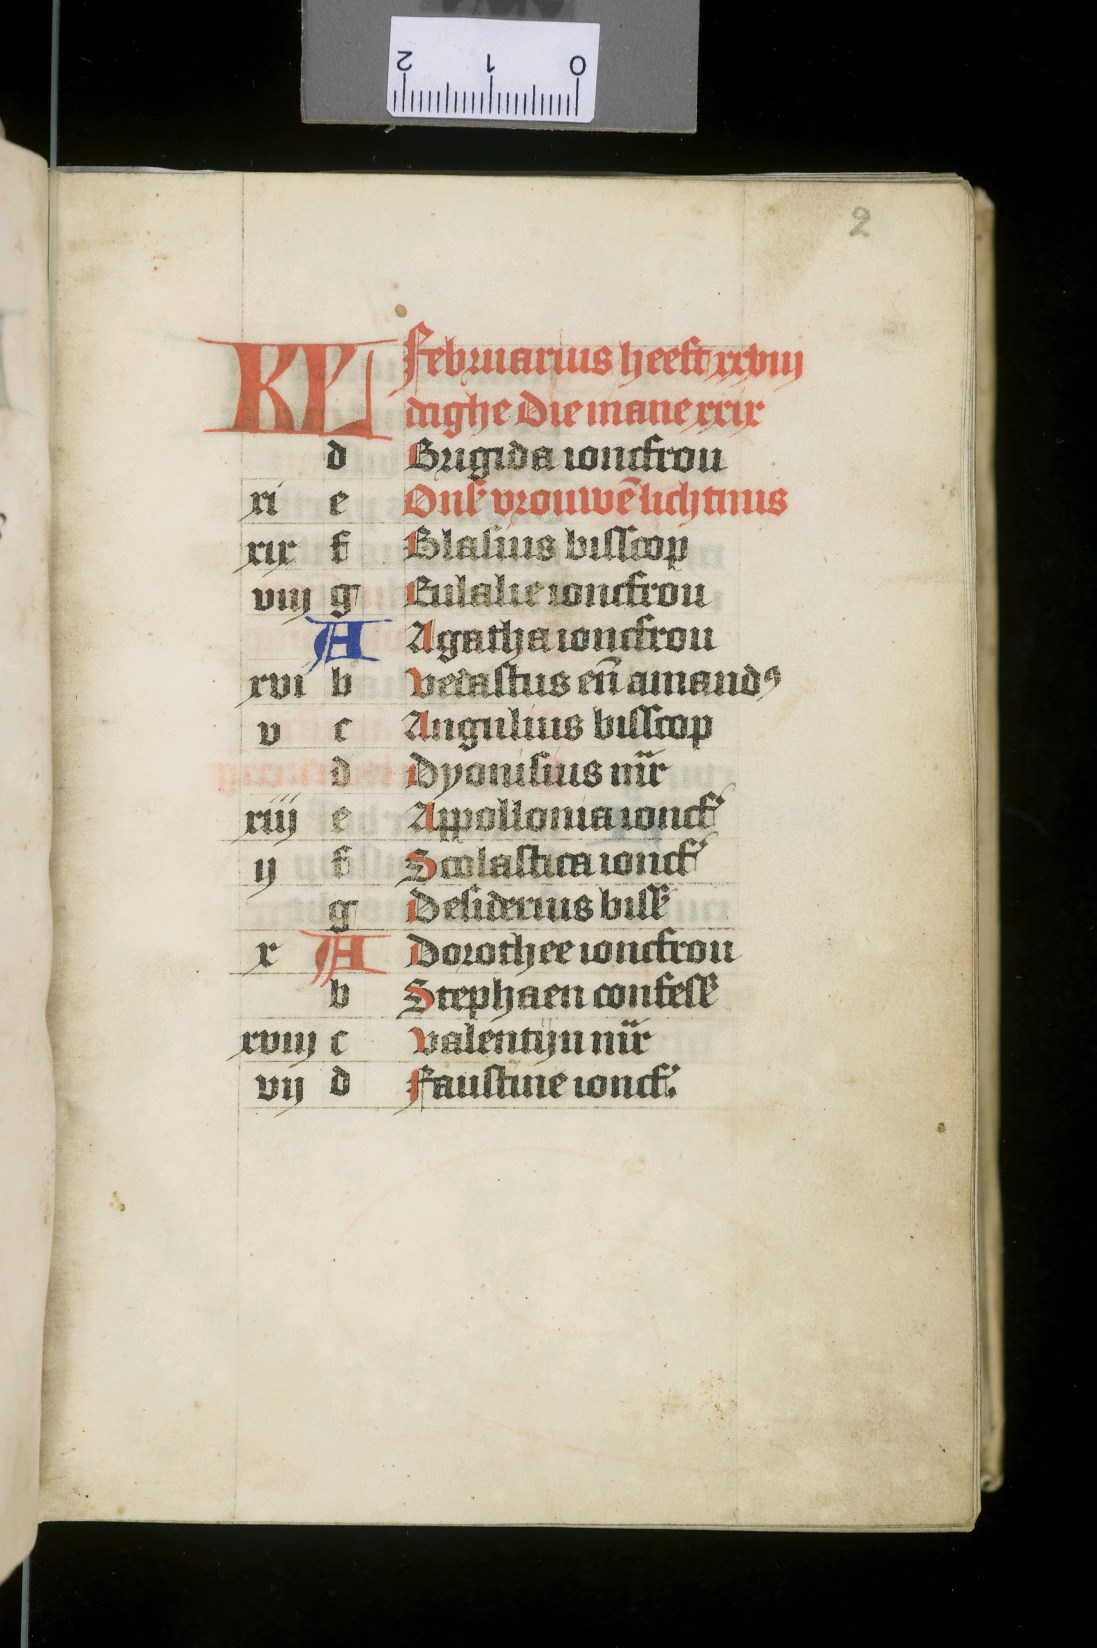 2 1 0
2
KL Februarius heeft xxviij
daghe Die mane xxix
d Brigida ioncfrou
xi e Onſ vrouwē lichtmis
xix f Blasius bisscop
viij g Eulalie ioncfrou
A Agatha ioncfrou
xvi b Vedastus eñ amandꝰ
v c Angulius bisscop
d Dyonisius m̄r
xiij e Appollonia ioncf'
ij f Scolastica ioncf'
g Desiderius biss'
x A Dorothee ioncfrou
b Stephaen confess'
xviij c Valentijn m̄r
vij d Faustine ioncf'.